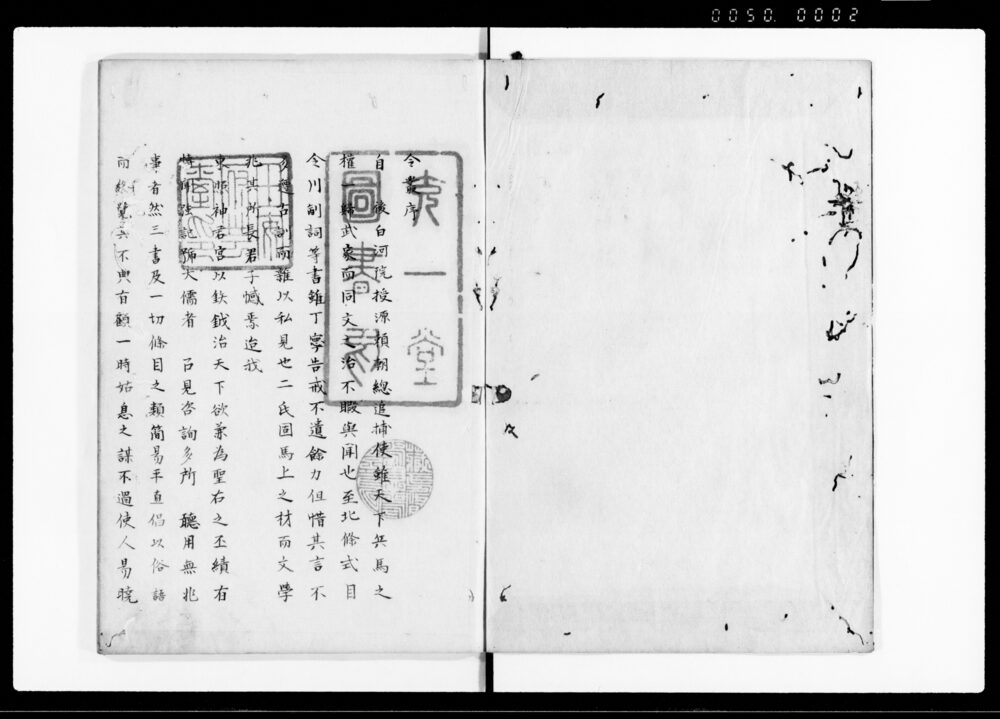 0050. 0002
令叢序
自 後白河院授源頼朝總追捕使雖天下兵馬之
權一歸武家而同文之治不暇與聞也至北條式目
今川制詞等書雖丁寧告戒不遺餘力但惜其言不
遵古訓而雜以私見也二氏固馬上之材而文學
非其所長君子憾焉迨我
東照神君宮以鈇鉞治天下欲兼為聖右之丕績有
時 強記號大儒者 召見咨詢多所 聽用無非
事者然三書及一切條目之類簡易平直倡以俗語
而終覽 不典自顧一時姑息之謀不過使人易曉
袁一堂
圖書